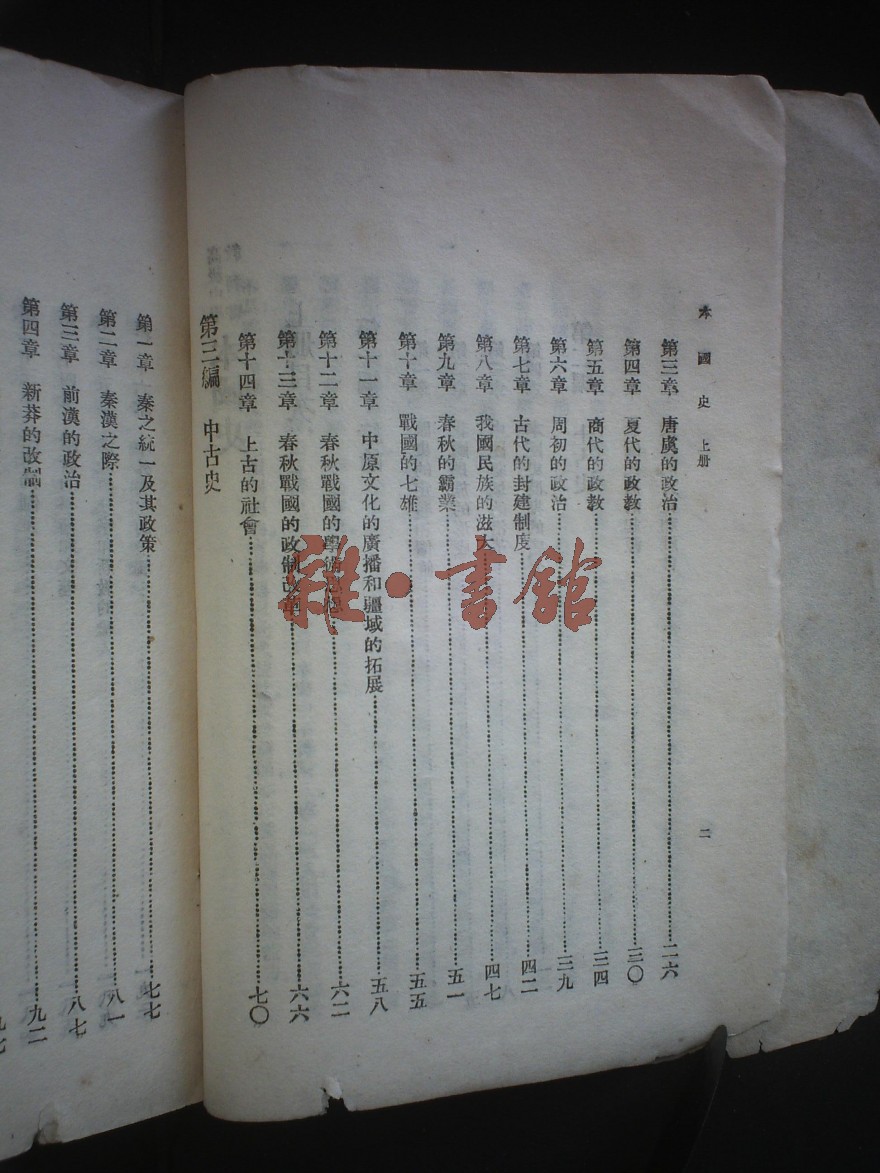 本國史 上册 二
第三章 唐虞的政治 二六
第四章 夏代的政教 三〇
第五章 商代的政教 三四
第六章 周初的政治 三九
第七章 古代的封建制度 四二
第八章 我國民族的滋大 四七
第九章 春秋的霸業 五一
第十章 戰國的七雄 五五
第十一章 中原文化的廣播和疆域的拓展 五八
第十二章 春秋戰國的學術思想 六二
第十三章 春秋戰國的政制改革 六六
第十四章 上古的社會 七〇
第三編 中古史
第一章 秦之統一及其政策 七七
第二章 秦漢之際 八一
第三章 前漢的政治 八七
第四章 新莽的改制 九二
雜·書館